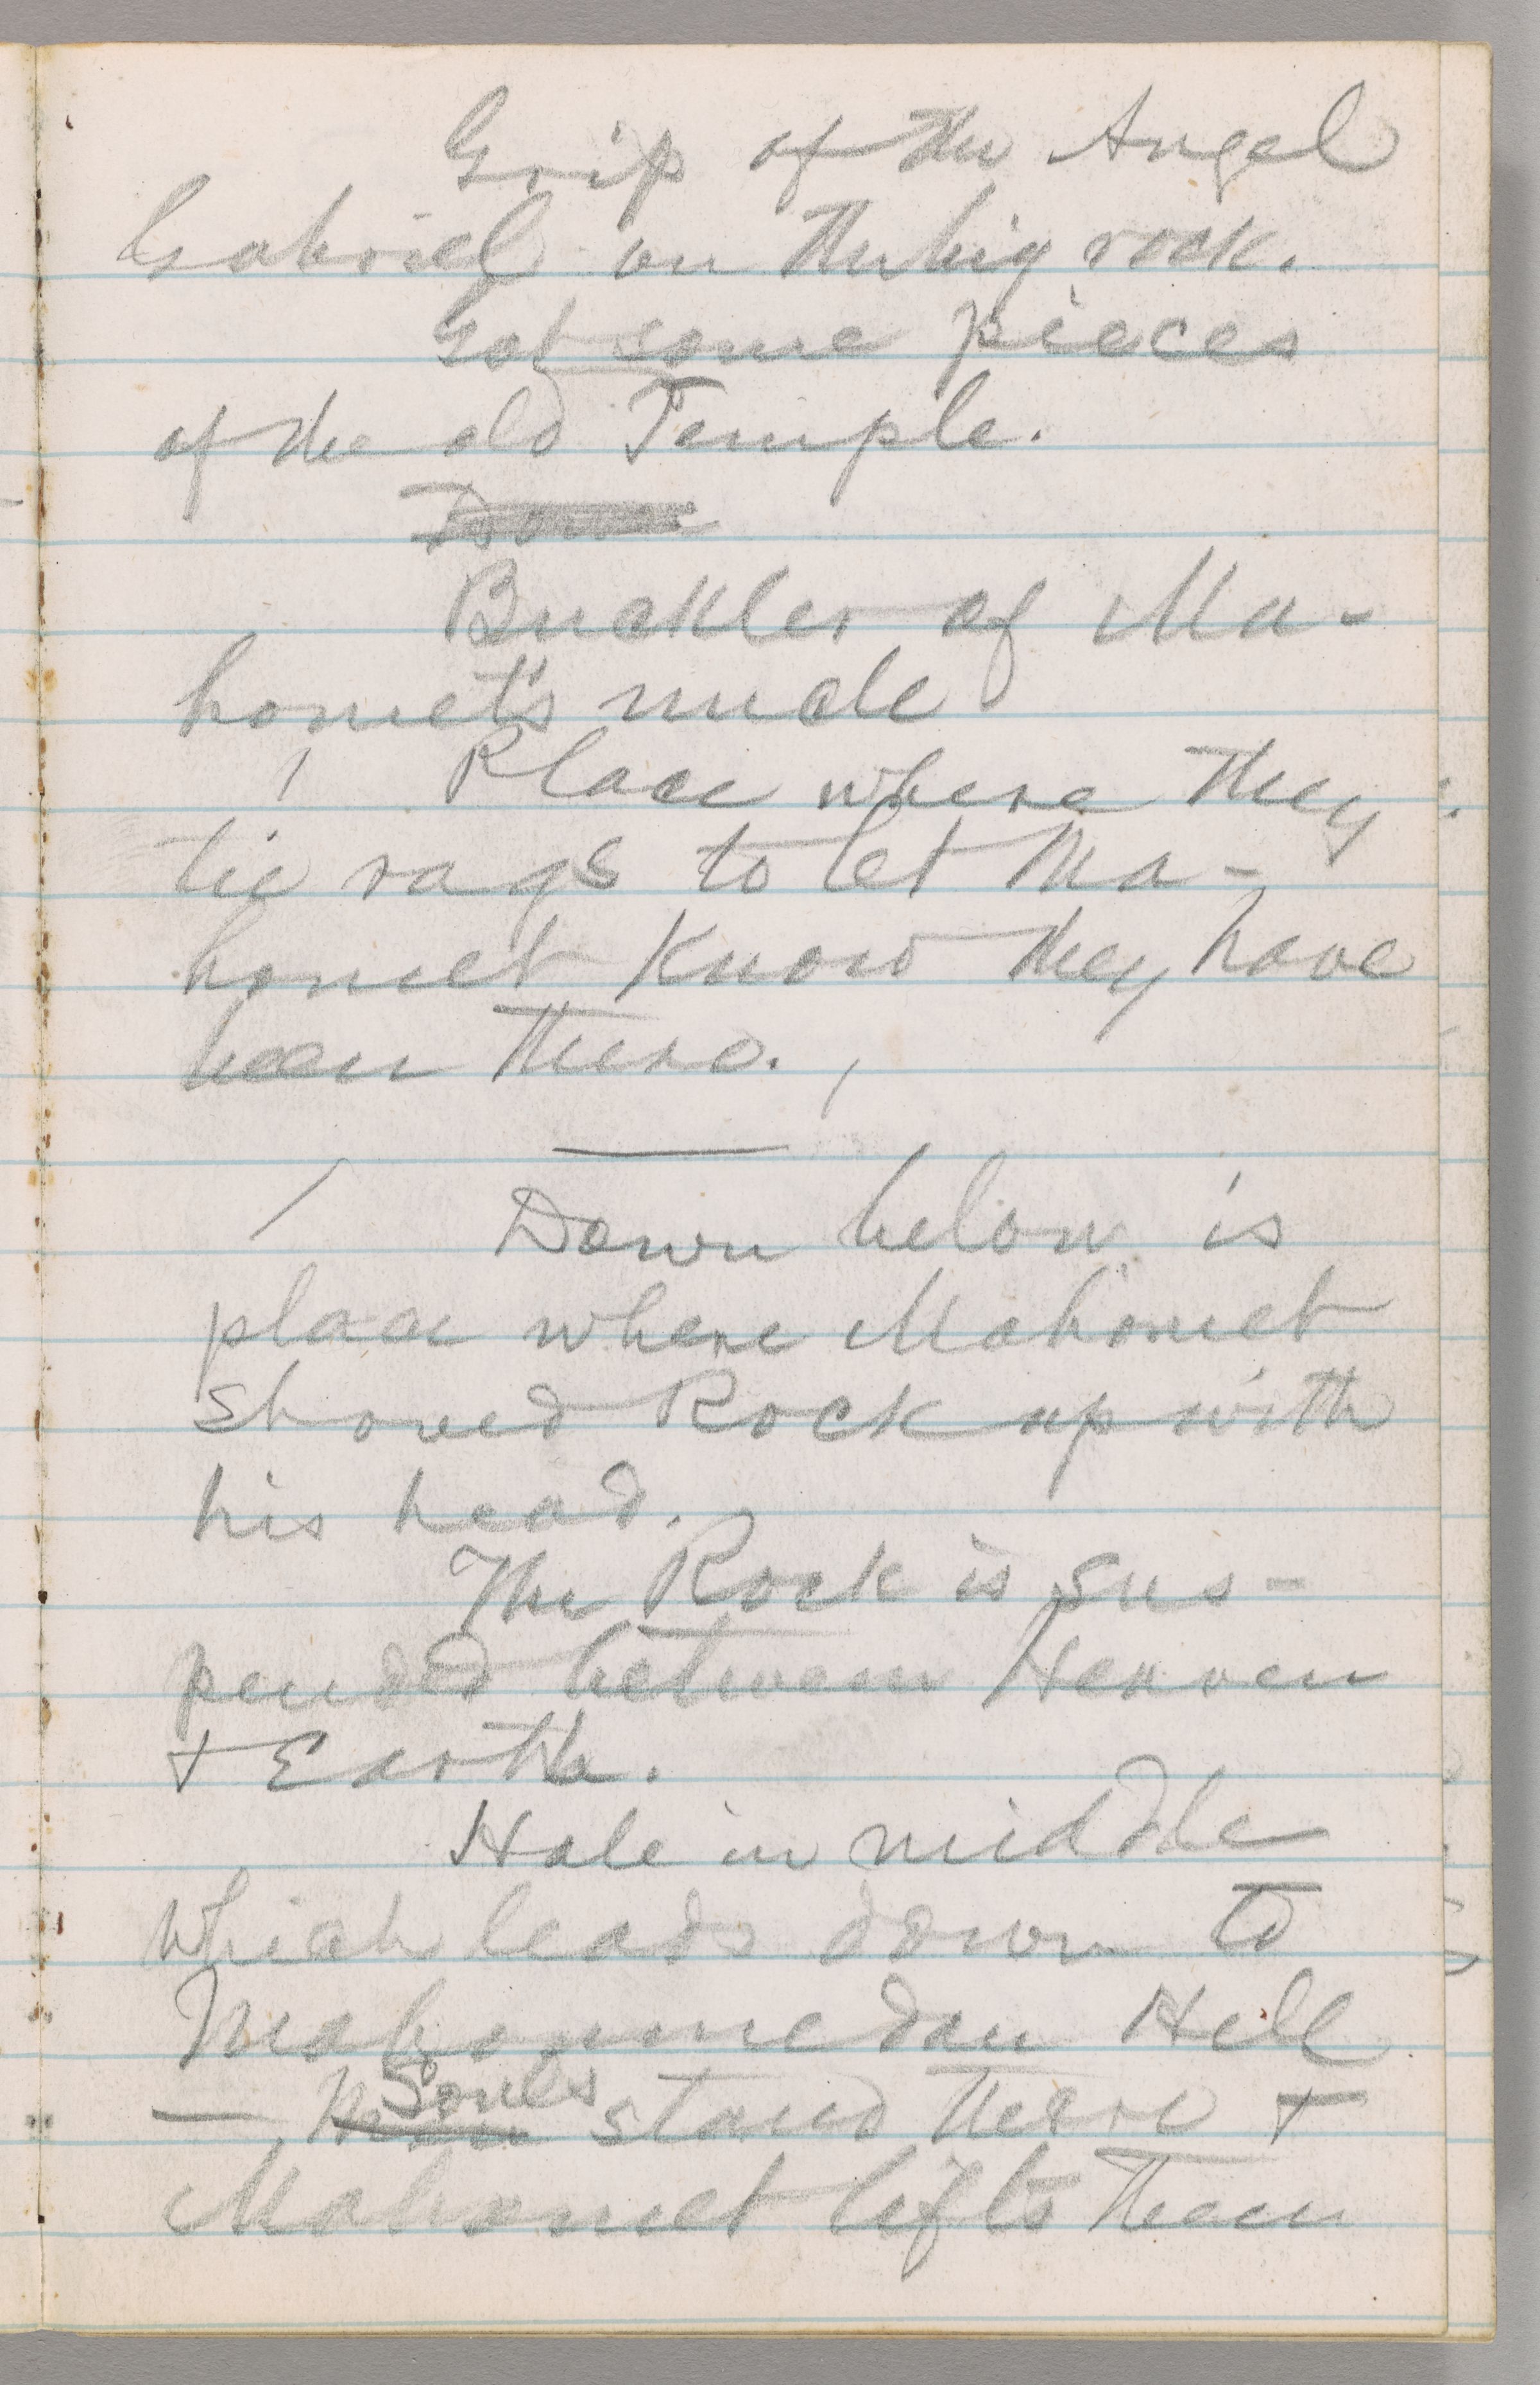 Grip of the Angel
Gabriel on the big rock.
Got some pieces
of the old Temple.
Down
Buckler of Ma-
homet's uncle
Place where they
tie rags to let Ma-
homet know they have
been there.
Down below is
place where Mahomet
shoved Rock up with
his head.
The Rock is sus-
pended between Heaven
& Earth.
Hole in middle
which leads down to
Mahommedan Hell
Souls
— stand there &
Mahomet lifts them